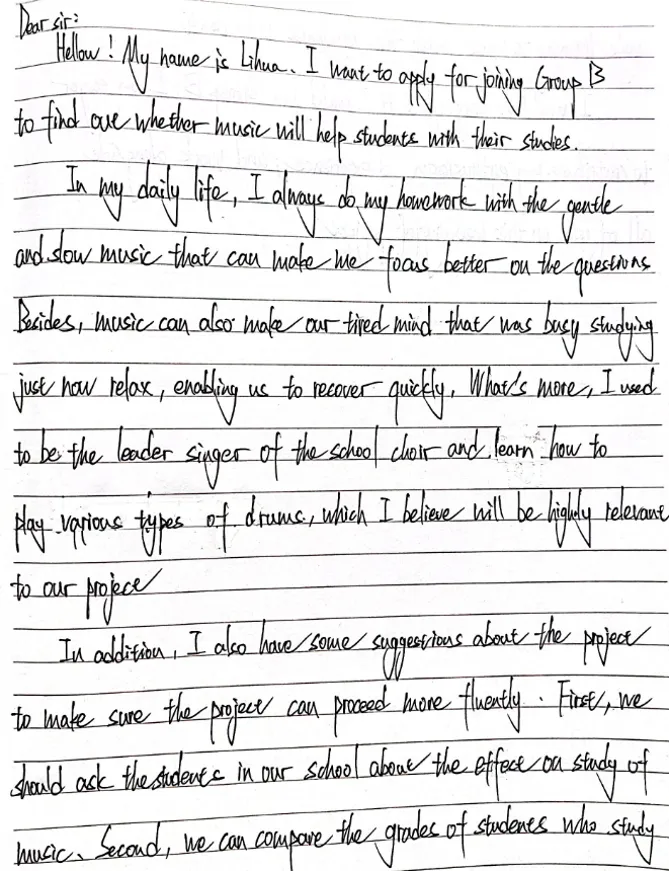 Dear sir:
Hellow! My name is Lihua. I want to apply for joining Group B
to find out whether music will help students with their studies.
In my daily life, I always do my homework with the gentle
and slow music that can make me focus better on the questions
Besides, music can also make our tired mind that was busy studying
just now relax, enabling us to recover quickly. What's more, I used
to be the leader singer of the school choir and learn how to
play various types of drums, which I believe will be highly relevant
to our project
In addition, I also have some suggestions about the project
to make sure the project can proceed more fluently. First, we
should ask the students in our school about the effect on study of
music. Second, we can compare the grades of students who study